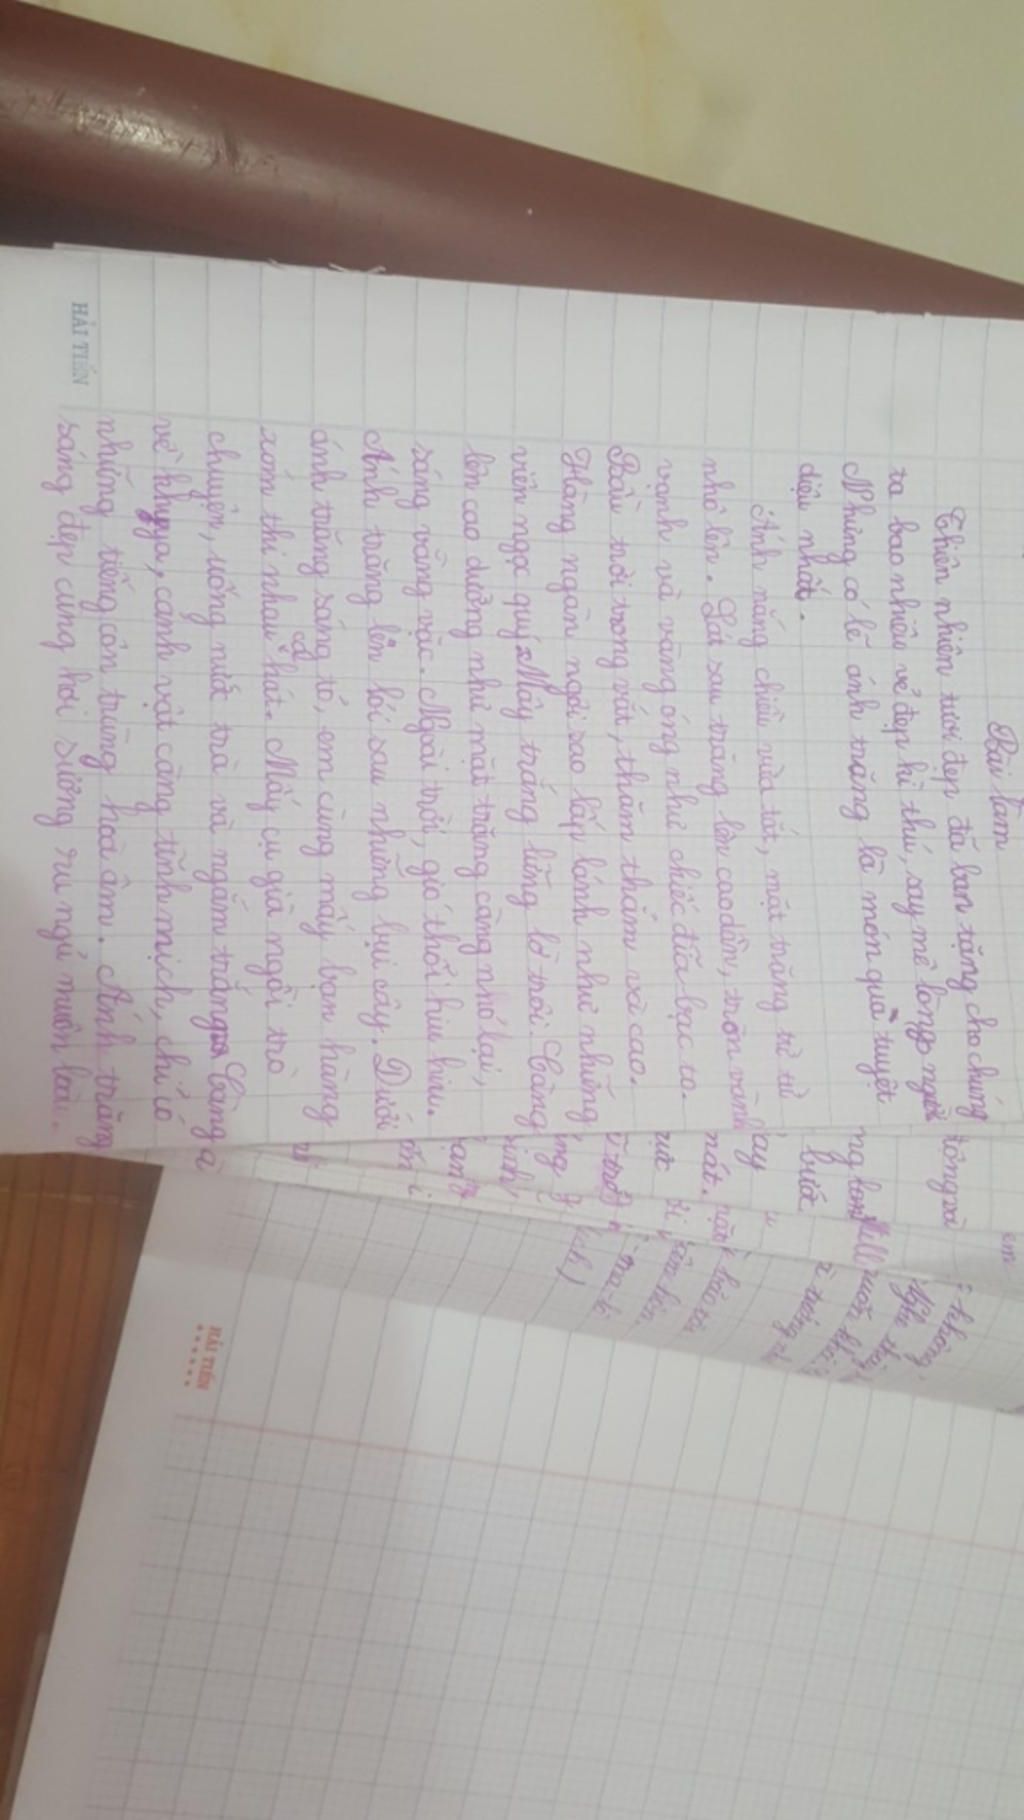 Bài làm
Thiên nhiên tươi đẹp đã ban tặng cho chúng
ta bao nhiêu vẻ đẹp kì thú, say mê lòng người
Nhưng có lẽ ánh trăng là món quà tuyệt
diệu nhất.
Ánh nắng chiều vừa tắt, mặt trăng từ từ
nhô lên. Lát sau trăng lên cao dần, tròn vành
vạnh và vàng óng như chiếc đĩa bạc to.
Bầu trời trong vắt, thăm thẳm và cao.
Hàng ngàn ngôi sao lấp lánh như những
viên ngọc quý. Mây trắng lững lờ trôi. Càng
lên cao dường như mặt trăng càng nhỏ lại,
sáng vằng vặc. Ngoài trời, gió thổi hiu hiu.
Ánh trăng lên lỏi sau những bụi cây. Dưới
ánh trăng sáng tỏ, em cùng mấy bạn hàng
xóm thi nhau ca hát. Mấy cụ già ngồi trò
chuyện, uống nước trà và ngắm trăng. Càng
về khuya, cảnh vật càng tĩnh mịch, chỉ có
những tiếng côn trùng hoà âm. Ánh trăng
sáng đẹp cùng hơi sương ru ngủ muôn loài.
HẢI TIẾN
HẢI TIẾN